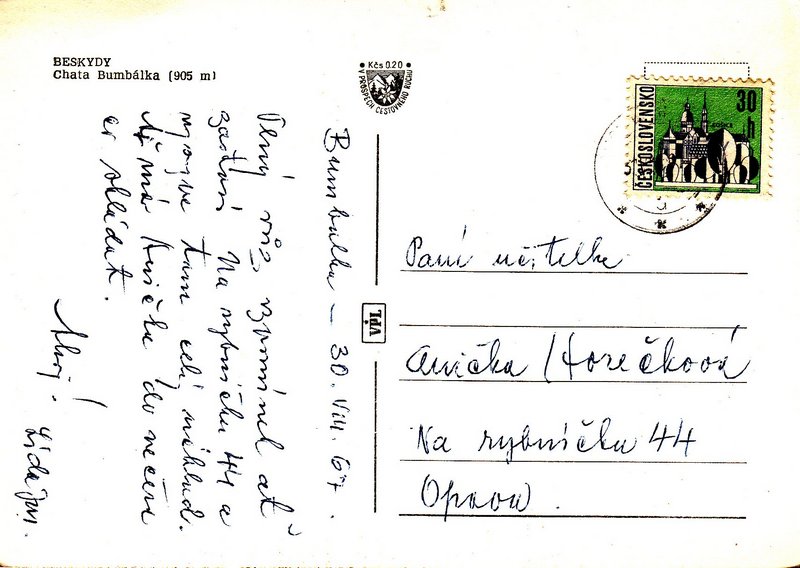 BESKYDY
Chata Bumbálka (905 m)
Kčs 0.20
V PROSPĚCH CESTOVNÍHO RUCHU
ČESKOSLOVENSKO
30 h
Bumbálka – 30. VIII. 67.
Plný vůz vzpomínek ať
zastaví Na rybníčku 44 a
tam celý náklad.
Ať má Anička do večera
co skládat.
Ahoj!
VPL
Paní učitelka
Anička Horečková
Na rybníčku 44
Opava.